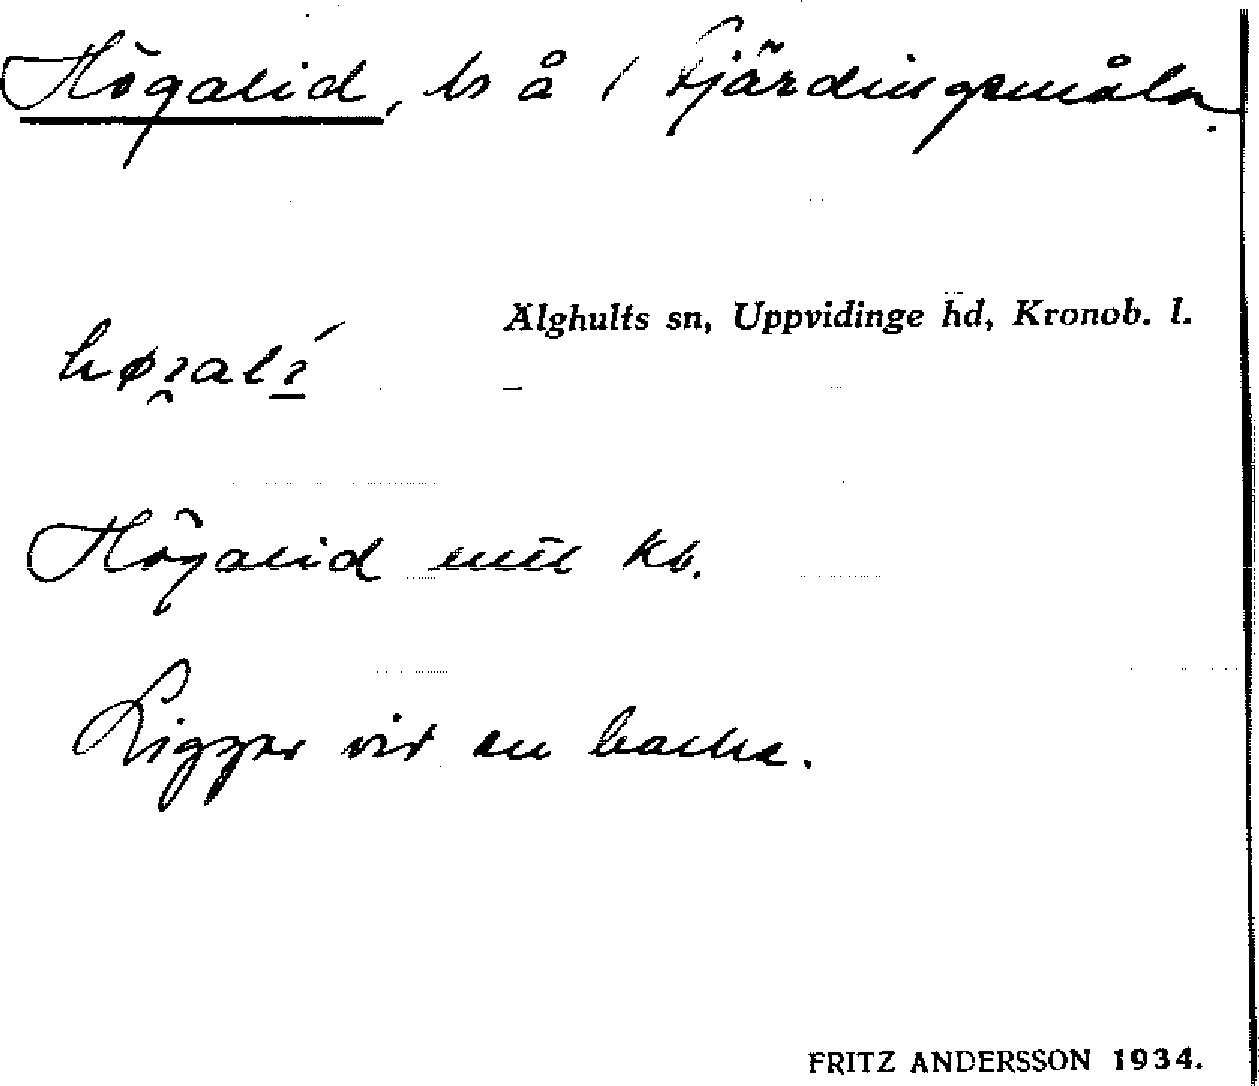 Högalid, ls å 1 Fjärdingsmåla.
Älghults sn, Uppvidinge hd, Kronob. l.
Högalid enl kb.
Ligger vid en backe.
FRITZ ANDERSSON 1934.